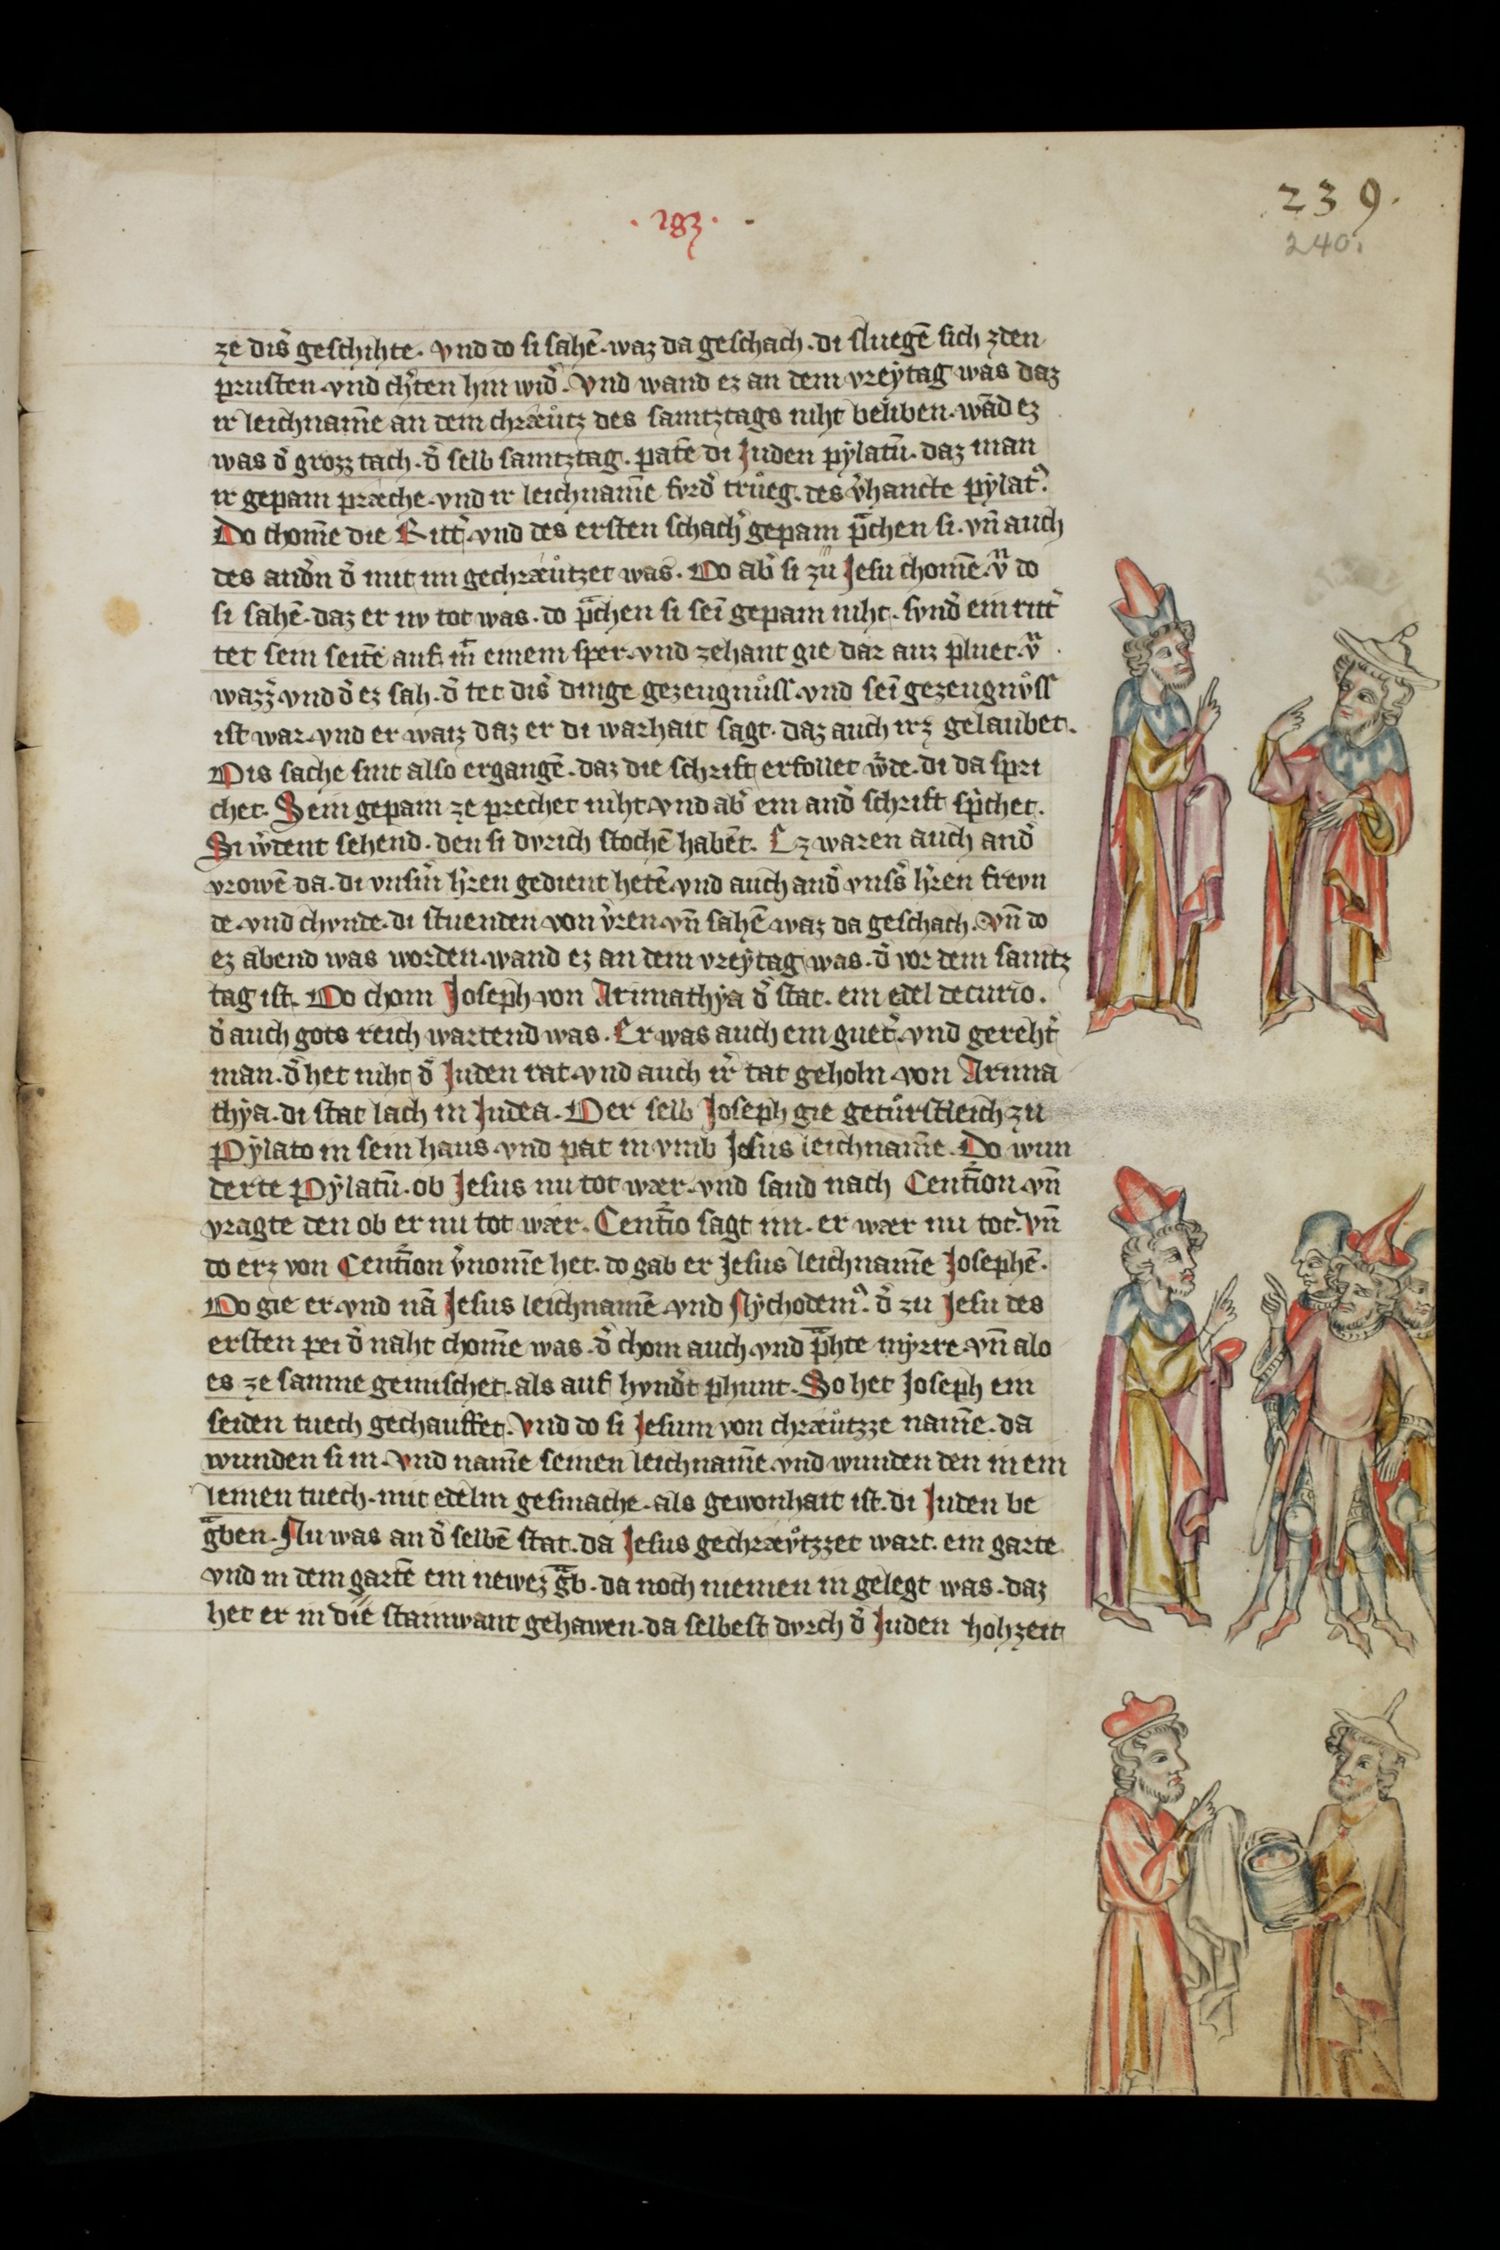 · 283 ·
239.
240.
ze dis̄ geschihte. vnd do si sahē. waz da geschach. di sluegē sich zden
prusten. vnd ch̓ten hin wid̓. Vnd wand ez an dem vreẏtag was daz
ir leichnam̄e an dem chræůtz des samtztags niht beliben. wād ez
was d̓ grozz tach. d̓ selb samtztag. patē di Juden pẏlatū. daz man
ir gepain præche. vnd ir leichnam̄e fvrd̓ trůeg. des v̓hancte pẏlat᾿.
Do chom̄e die Ritt̓. vnd des ersten schach̓ gepain pͣchen si. vn̄ auch
des and̓n d̓ mit im gechræůtzet was. Do ab̓ si zů Jesu chom̄e. vͣ do
si sahē. daz er nv tot was. do pͣchen si sei̅ gepain niht. svnd̓ ein ritt̓
tet sein seitē auf. m̄ einem sper. vnd zehant gie dar auz pluet. vͣ
wazz̓. vnd d̓ ez sah. d̓ tet dis̓ dinge gezeugnůss. vnd sei̅ gezeugnv̊ss
ist war. vnd er waiz daz er di warhait sagt. daz auch irz gelaubet.
Dis sache sint also ergangē. daz die schrift erfollet w̓de. di da spri
chet. Sein gepain ze prechet niht. vnd ab̓ ein and̓ schrift sp̓chet.
Si w̓dent sehend. den si dvrich stochē habēt. Ez waren auch and̓
vrowē da. di vnsīn h̓ren gedient hetē. vnd auch and̓ vns̓s h̓ren frevn
de. vnd chvnde. di stuenden von v̓ren. vn̄ sahē waz da geschach. Vn̄ do
ez abend was worden. wand ez an dem vreẏtag was. d̓ vor dem samtz
tag ist. Do chom Joseph von Arimathẏa d̓ stat. ein edel decurio.
d̓ auch gots reich wartend was. Er was auch ein guet̓. vnd gereht̓
man. d̓ het niht d̓ Juden rat. vnd auch ir̓ tat geholn. von Arima
thẏa. di stat lach in Judea. Der selb Joseph gie getůrstleich zu
Pẏlato in sein haus. vnd pat in vmb Jesus leichnam̄e. Do wun
derte Pẏlatū. ob Jesus nu tot wær. vnd sand nach Cent̄ion. vn̄
vragte den ob er nu tot wær. Cent̄io sagt im. er wær nu tot. Vn̄
do erz von Cent̄ion v̓nom̄e het. do gab er Jesus leichnam̄e Josephē.
Do gie er. vnd nā Jesus leichnamē. vnd Nẏchodem᾿. d̓ zu Jesu des
ersten pei d̓ naht chom̄e was. d̓ chom auch. vnd pͣhte mẏrre. vn̄ alo
es ze samne gemischet. als auf hvnd̓t phunt. So het Joseph ein
seiden tuech gechauffet. Vnd do si Jesum von chræůtzze nam̄e. da
wunden si in. Vnd nam̄e seinen leichnam̄e. vnd wunden den in ein
leinen tuech. mit edelm gesmache. als gewonhait ist. di Juden be
gͣben. Nu was an d̓ selbē stat. da Jesus gechræv̊tzzet wart. ein garte
vnd in dem gartē ein newez gͣb. da noch niemen in gelegt was. daz
het er in die stainwant gehawen. da selbest dvrch d̓ Juden hohzeit